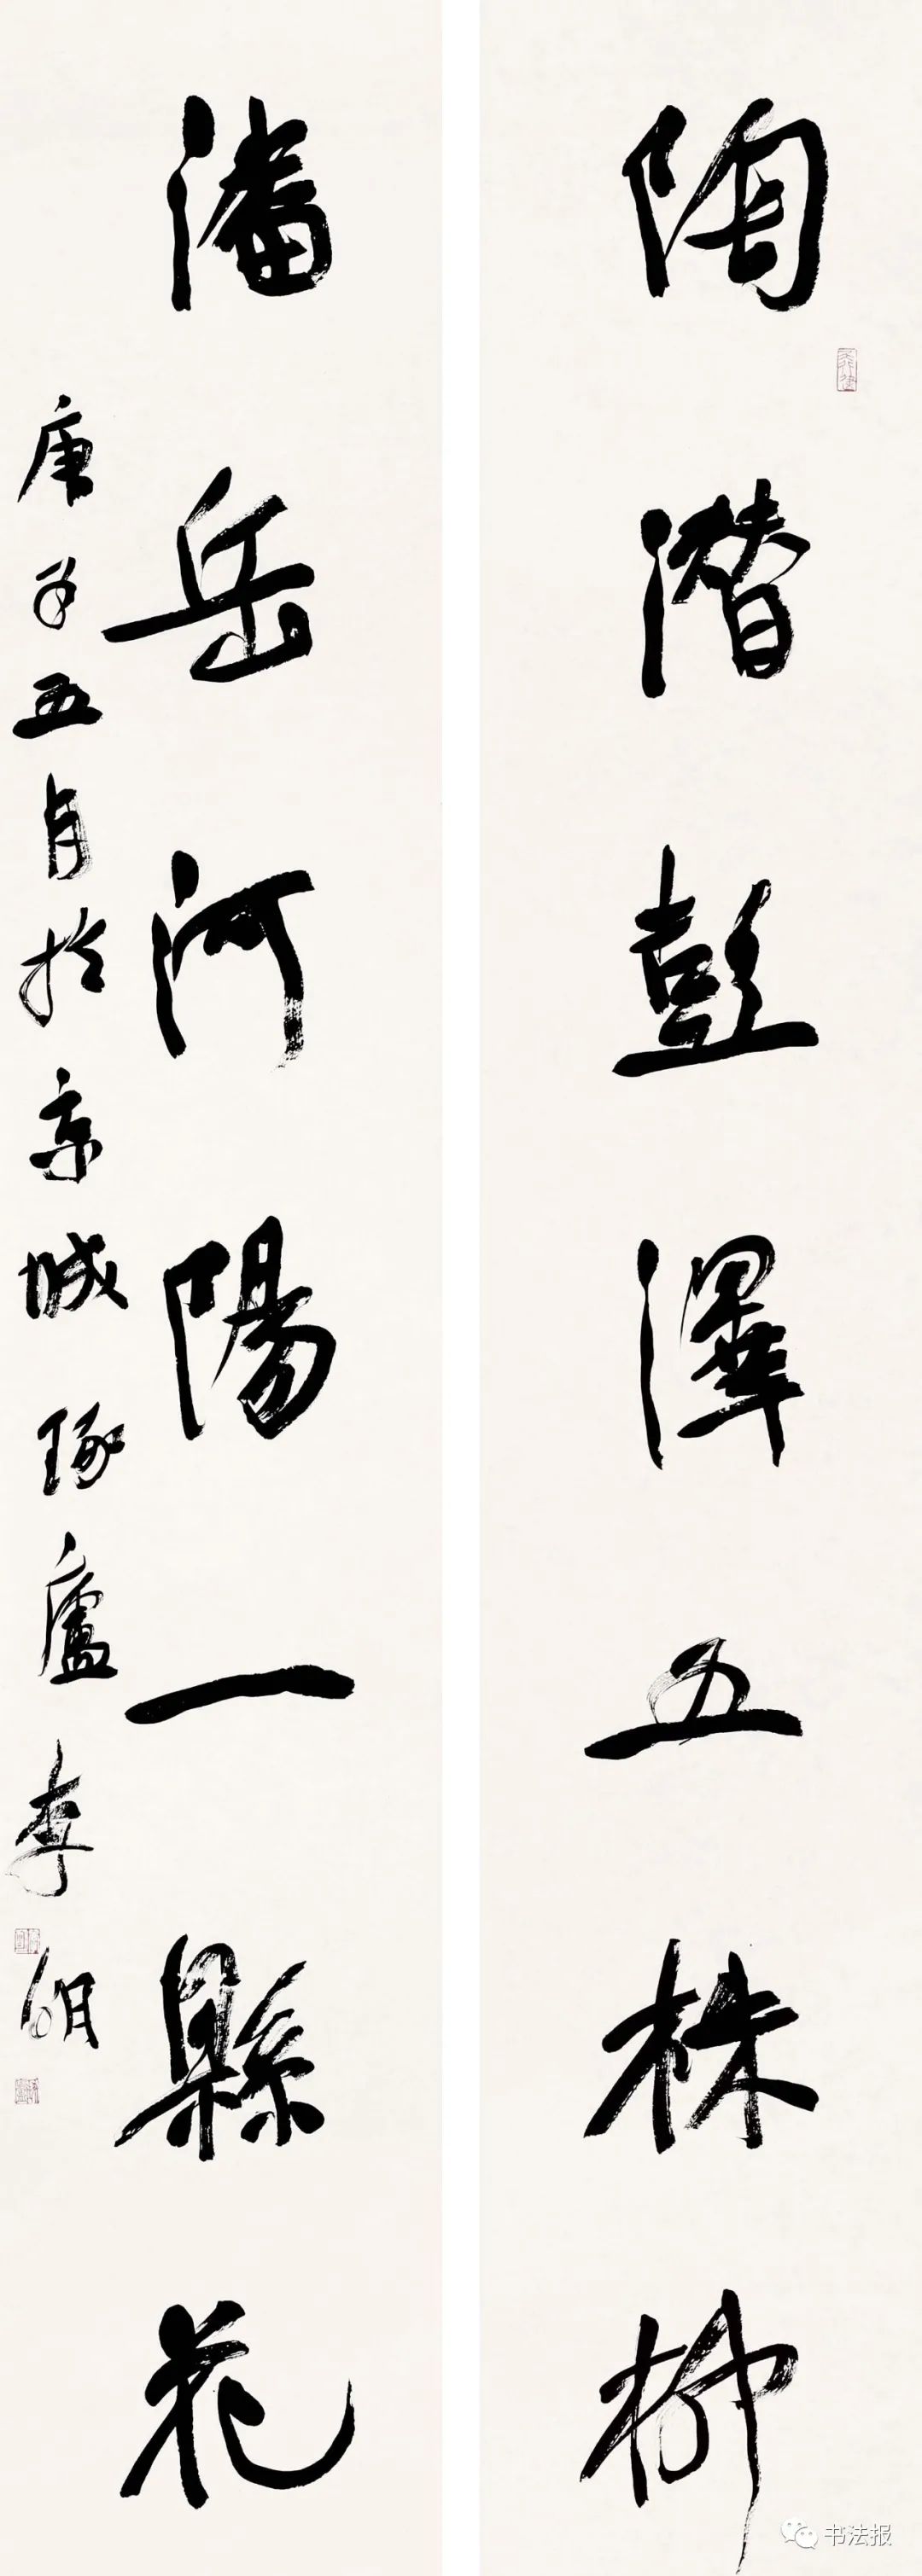 陶潛彭澤五株柳
潘岳河陽一縣花
庚子五月於京城琢廬李明
书法报